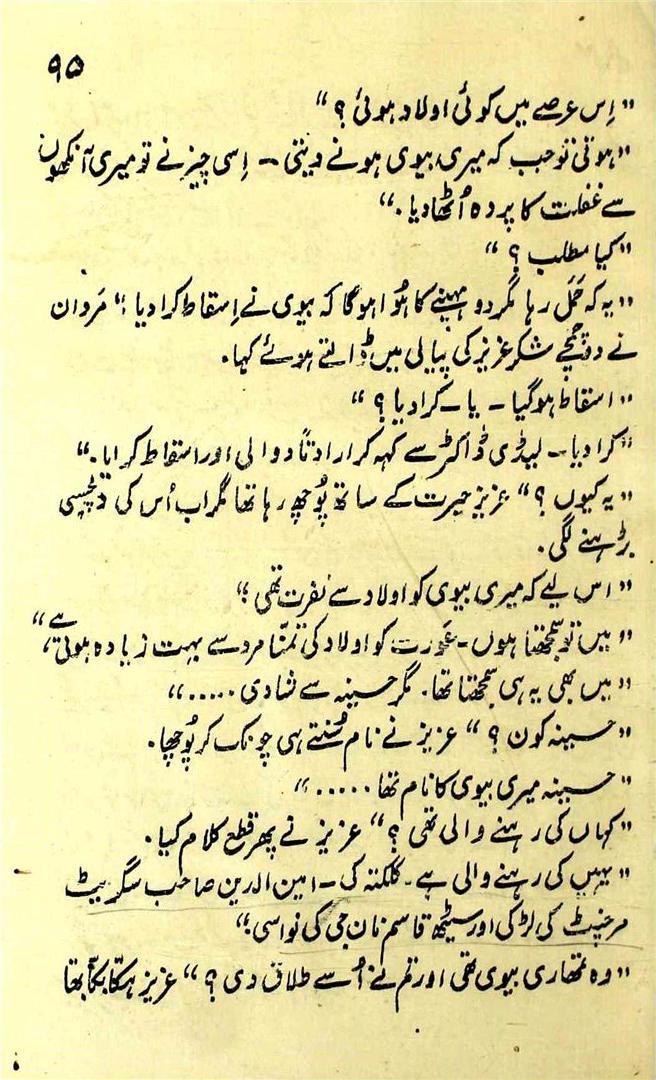 ۹۵
"اِس عرصے میں کوئی اولاد ہوئی؟"
"ہوتی تو جب کہ میری بیوی ہونے دیتی۔ اِسی چیز نے تو میری آنکھوں
سے غفلت کا پردہ اُٹھا دیا۔"
"کیا مطلب؟"
"یہ کہ حَمل رہا مگر دو مہینے کا ہُوا ہوگا کہ بیوی نے اِسقاط کرا دیا!" مَردان
نے دو چمچے شکر عزیز کی پیالی میں ڈالتے ہوئے کہا۔
"اسقاط ہوگیا۔ یا۔ کرا دیا؟"
"کرا دیا۔ لیڈی ڈاکٹر سے کہہ کر ارادتاً دوا لی اور اسقاط کرایا۔"
"یہ کیوں؟" عزیز حیرت کے ساتھ پُوچھ رہا تھا مگر اب اُس کی دلچسپی
بڑہنے لگی۔
"اس لیے کہ میری بیوی کو اولاد سے نفرت تھی!"
"میں تو سمجھتا ہوں۔ عَورت کو اولاد کی تمنّا مرد سے بہت زیادہ ہوتی ہے"
"میں بھی یہ ہی سمجھتا تھا۔ مگر حسینہ سے شادی ....."
"حسینہ کون؟" عزیز نے نام سُنتے ہی چونک کر پُوچھا۔
"حسینہ میری بیوی کا نام تھا ....."
"کہاں کی رہنے والی تھی؟" عزیز نے پھر قطع کلام کیا۔
"یہیں کی رہنے والی ہے۔ کلکتہ کی۔ امین الدین صاحب سگریٹ
مرچنٹ کی لڑکی اور سیٹھ قاسم نان جی کی نواسی!"
"وہ تمھاری بیوی تھی اور تم نے اُسے طلاق دی؟" عزیز ہکّا بکّا تھا